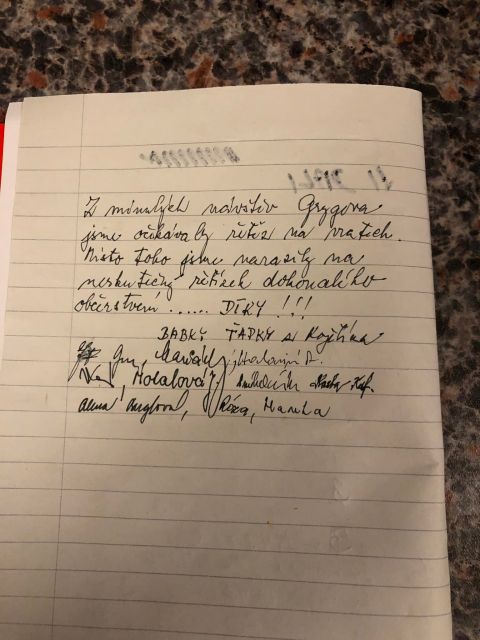 Z minulých návštěv Grygova
jsme očekávaly řetěz na vratech.
Místo toho jsme narazily na
neskutečný řetízek dokonalého
občerstvení ...... DÍKY !!!
BABKY ŤAPKY z Kojetína
Holalová
Alena
Růža, Hanka